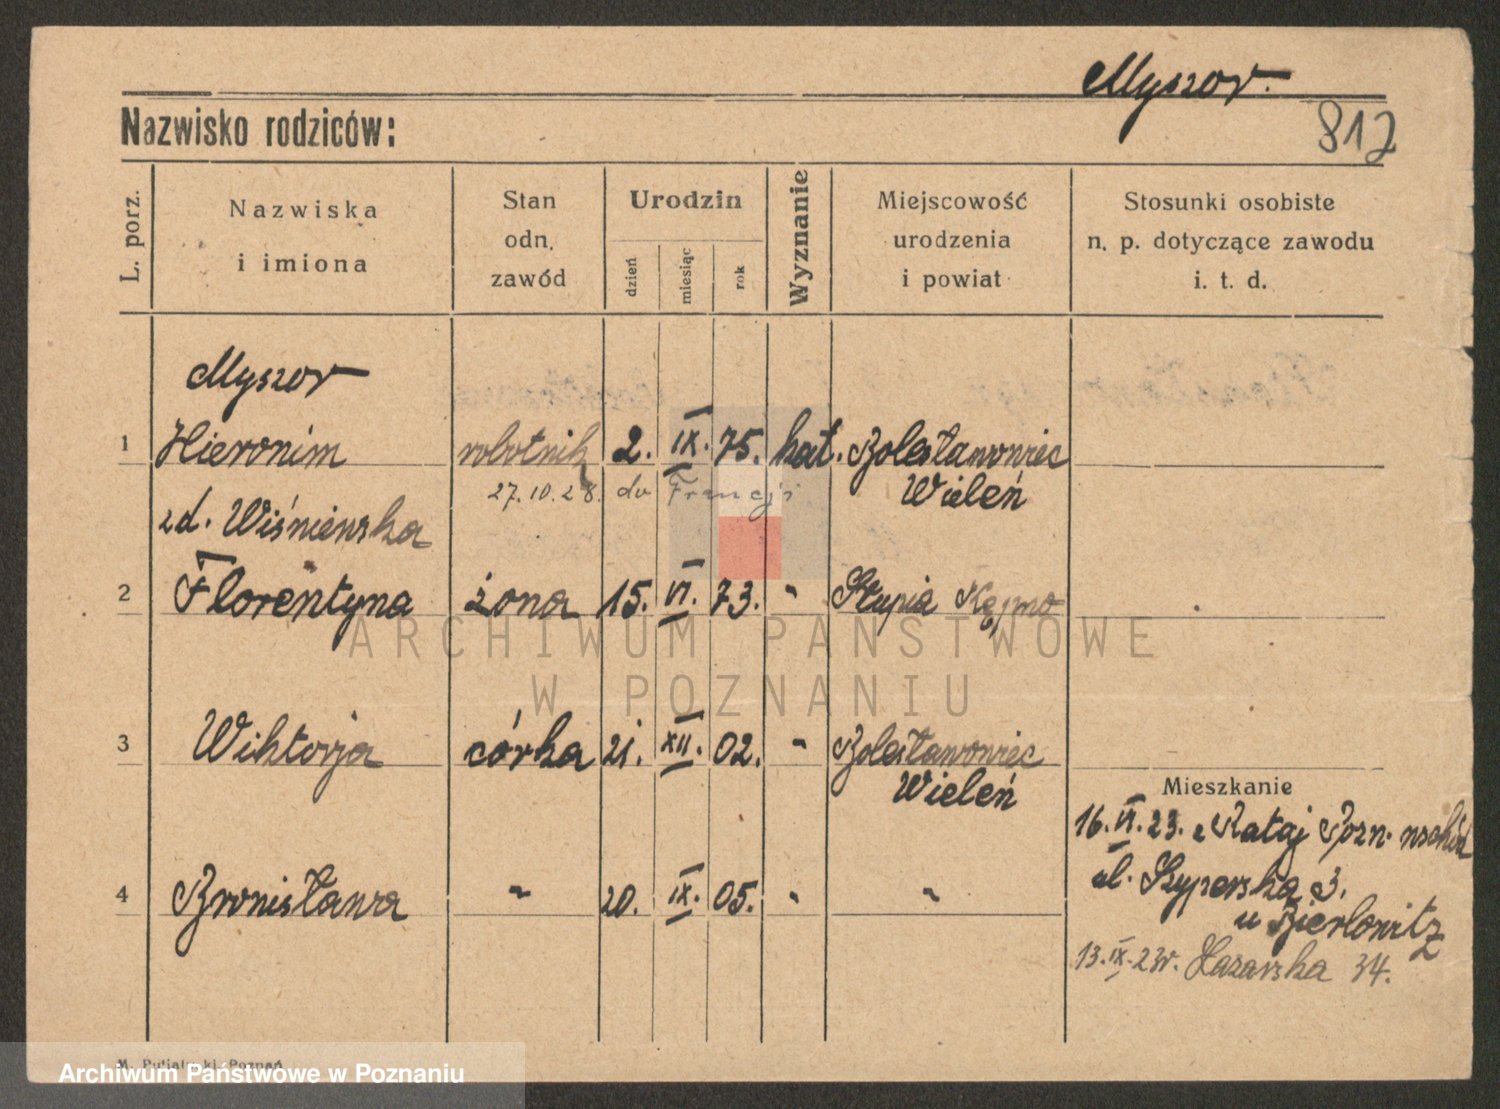 Myszor.
Nazwisko rodziców:
817
L. porz.
Nazwiska
i imiona
Stan
odn.
zawód
Urodzin
dzień
miesiąc
rok
Wyznanie
Miejscowość
urodzenia
i powiat
Stosunki osobiste
n. p. dotyczące zawodu
i. t. d.
Myszor
1 Hieronim robotnik 2. IX. 75. kat. Bolesławowiec
27.10.28. do Francji Wieleń
zd. Wiśniewska
2 Florentyna żona 15. VI. 73. " Słupia Kępno
ARCHIWUM PAŃSTWOWE
W POZNANIU
3 Wiktorja córka 21. XII. 02. " Bolesławowiec
Wieleń
Mieszkanie
16. VI. 23. z Rataj Pozn. wschód
4 Bronisława " 20. IX. 05. " "
ul. Szyperska 3.
u Bierlowitz
13. IX. 23r. Łazarska 34.
Poznań
Archiwum Państwowe w Poznaniu